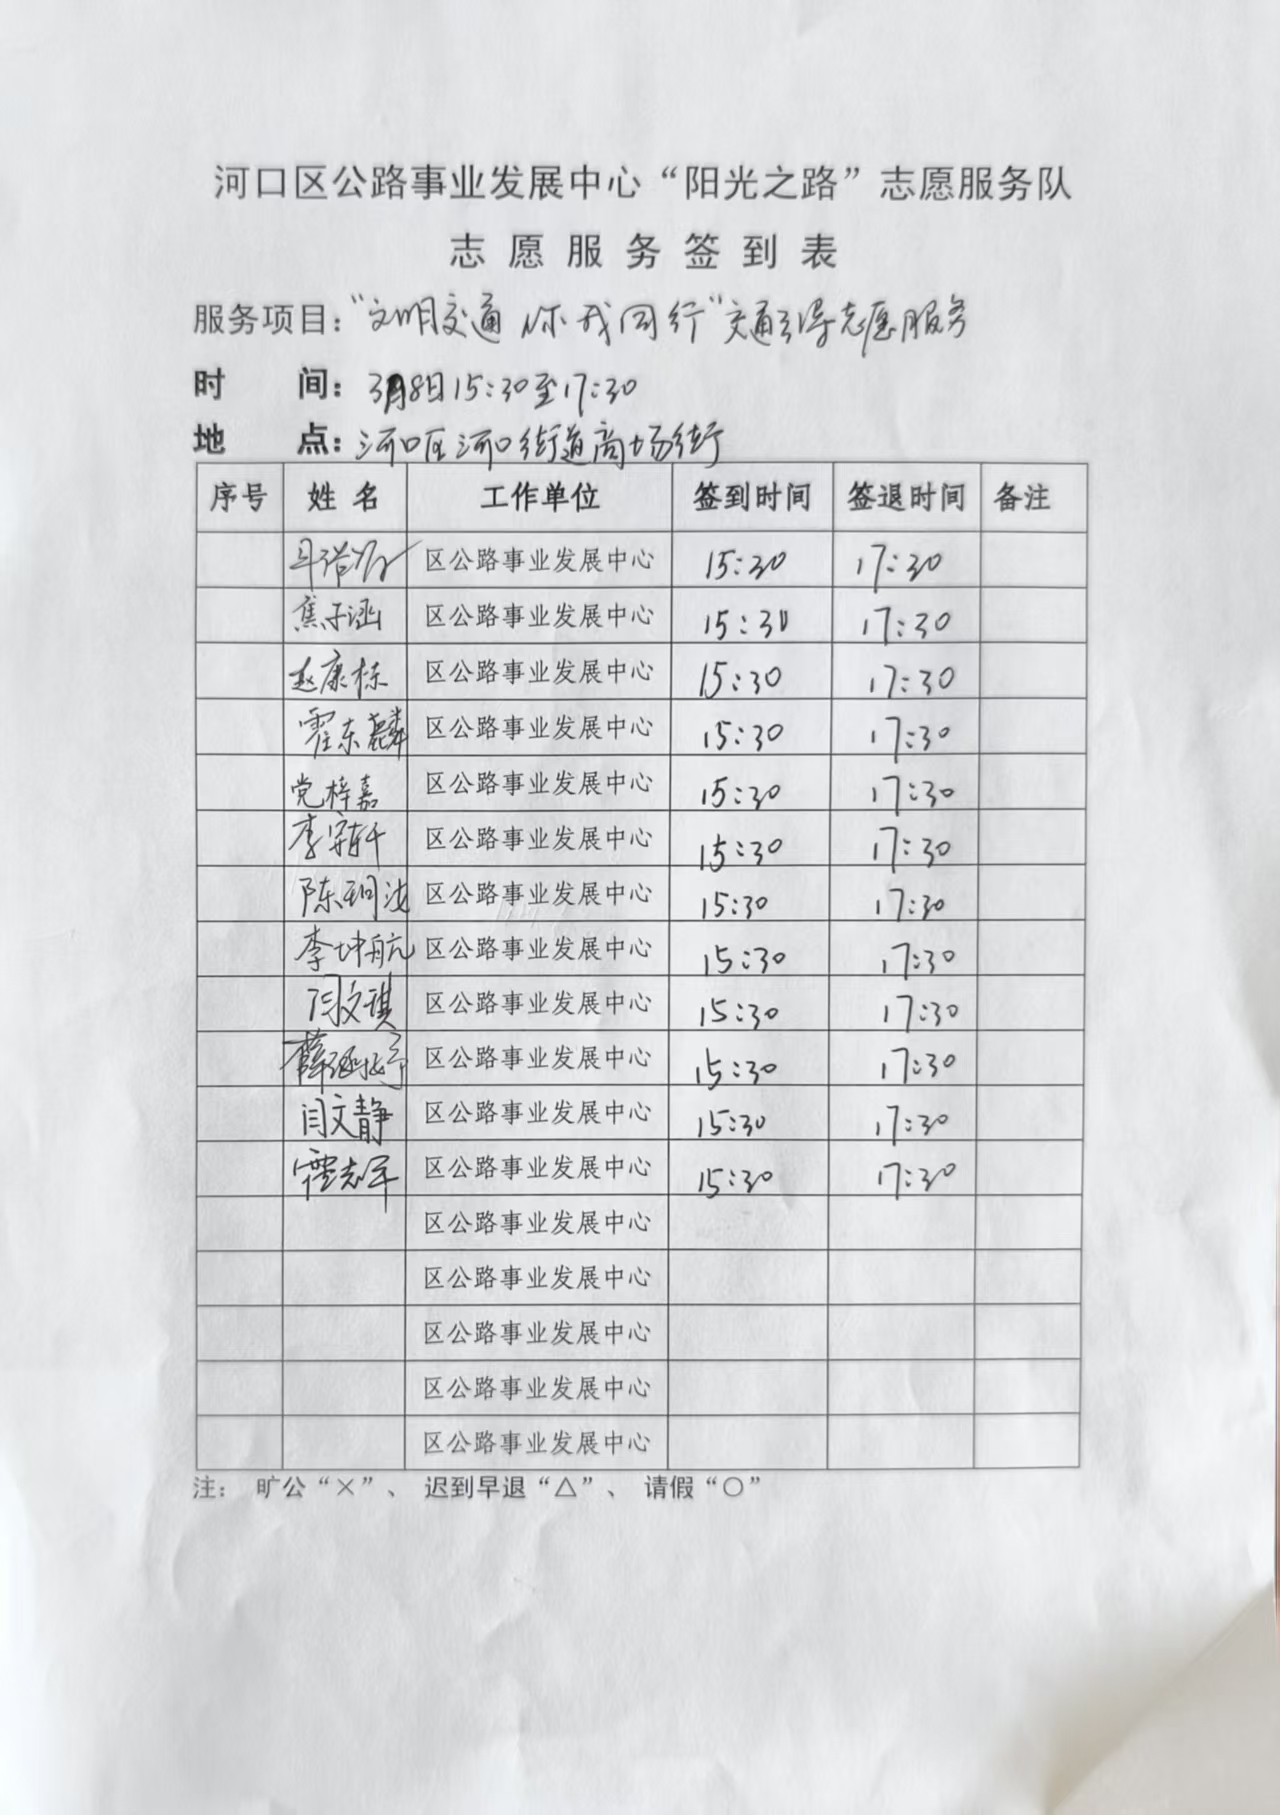 河口区公路事业发展中心“阳光之路”志愿服务队
志愿服务签到表
服务项目:“文明交通 你我同行”交通引导志愿服务
时 间: 3月8日15:30至17:30
地 点: 河口区河口街道商场街
序号 姓名 工作单位 签到时间 签退时间 备注
区公路事业发展中心 15:30 17:30
焦子涵 区公路事业发展中心 15:30 17:30
赵康栋 区公路事业发展中心 15:30 17:30
霍东麟 区公路事业发展中心 15:30 17:30
党梓嘉 区公路事业发展中心 15:30 17:30
李 区公路事业发展中心 15:30 17:30
陈 区公路事业发展中心 15:30 17:30
李坤航 区公路事业发展中心 15:30 17:30
闫文琪 区公路事业发展中心 15:30 17:30
薛 区公路事业发展中心 15:30 17:30
闫文静 区公路事业发展中心 15:30 17:30
霍志军 区公路事业发展中心 15:30 17:30
区公路事业发展中心
区公路事业发展中心
区公路事业发展中心
区公路事业发展中心
区公路事业发展中心
注: 旷公“×”、 迟到早退“△”、 请假“○”